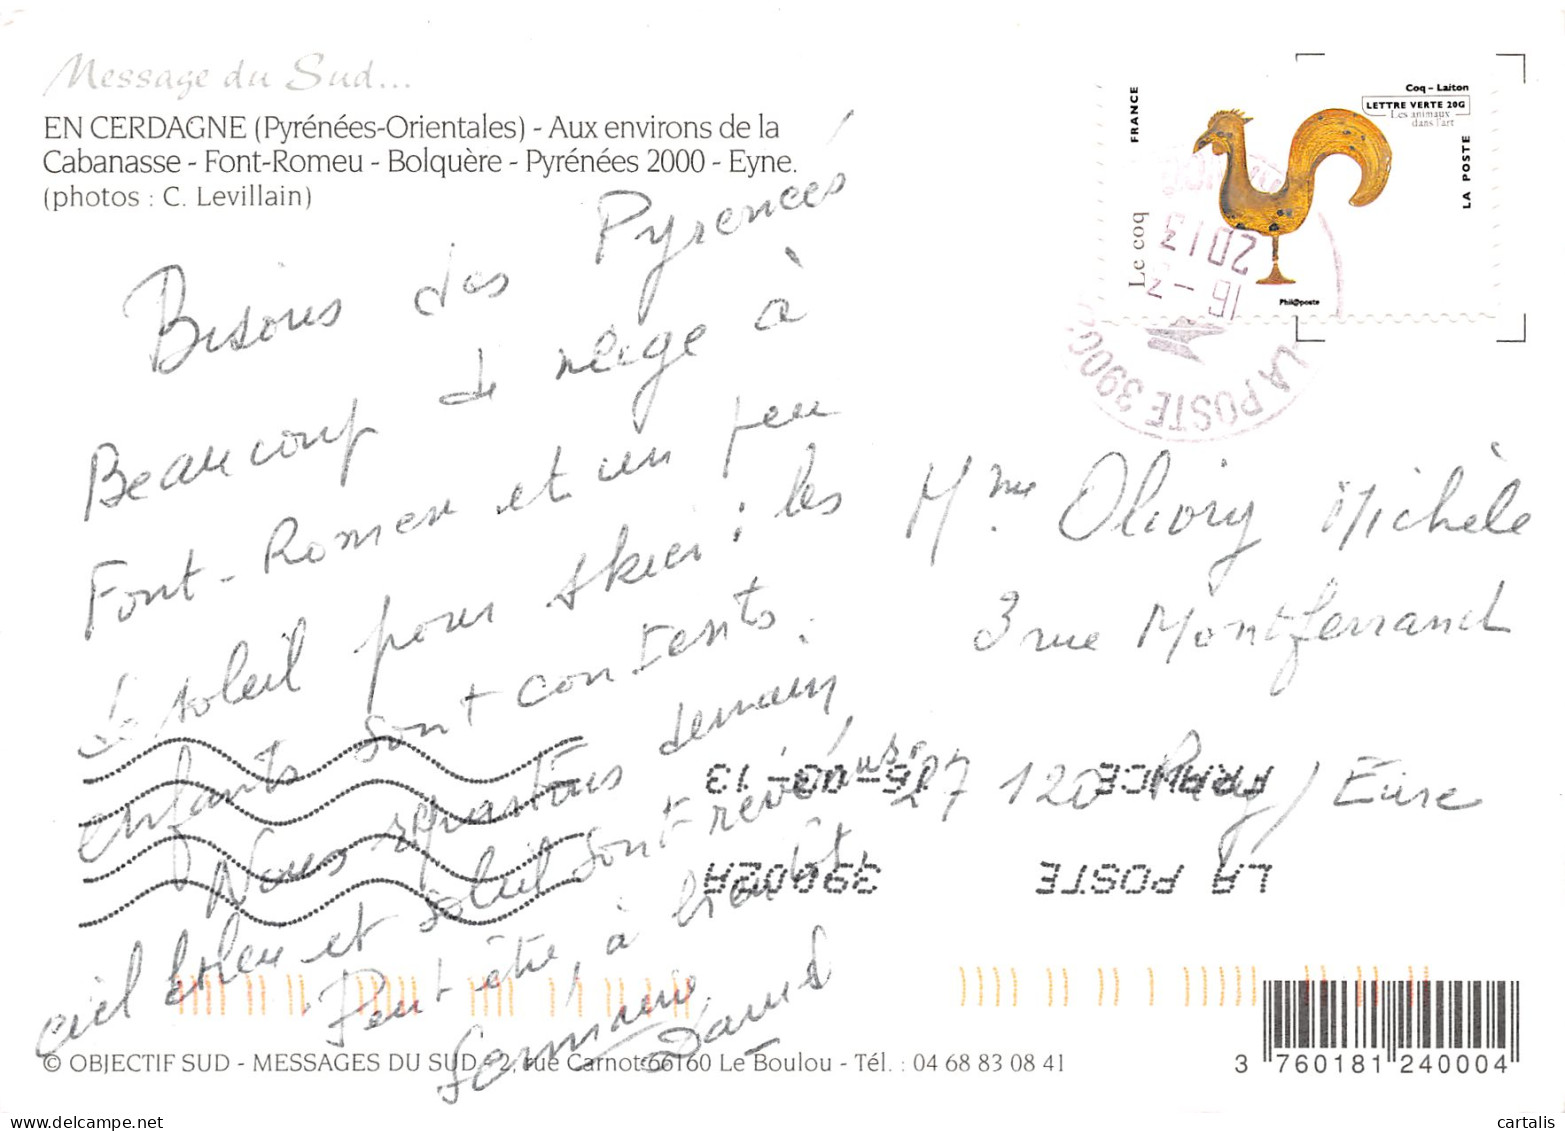 Message du Sud...
EN CERDAGNE (Pyrénées-Orientales) - Aux environs de la
Cabanasse - Font-Romeu - Bolquère - Pyrénées 2000 - Eyne.
(photos : C. Levillain)
Bisous des Pyrénées !
Beaucoup de neige à
Font-Romeu et un peu
de soleil pour skier ; les
enfants sont contents.
Nous repartons demain
ciel bleu et soleil sont revenus !
Peut être, à bientôt,
Germaine
FRANCE
Coq - Laiton
LETTRE VERTE 20G
Les animaux
dans l'art
LA POSTE
Le coq
Phil@poste
16 - 3
2013
LA POSTE 3900
Mme Olivry Michèle
3 rue Montferrand
27 120 Pacy / Eure
FRANCE
16-03-13
LA POSTE
39002A
© OBJECTIF SUD - MESSAGES DU SUD - 2, rue Carnot 66160 Le Boulou - Tél. : 04 68 83 08 41
3 760181 240004
delcampe.net
cartalis